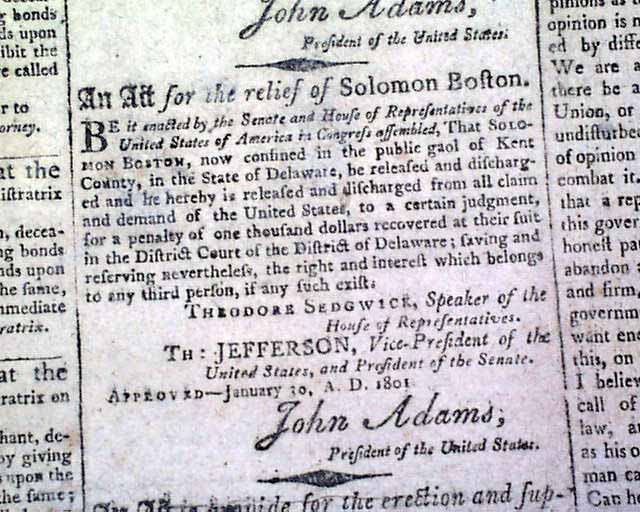 John Adams,
President of the United States.
An Act for the relief of Solomon Boston.
BE it enacted by the Senate and House of Representatives of the
United States of America in Congress assembled, That SOLO-
MON BOSTON, now confined in the public gaol of Kent
County, in the State of Delaware, be released and discharg-
ed and he hereby is released and discharged from all claim
and demand of the United States, to a certain judgment,
for a penalty of one thousand dollars recovered at their suit
in the District Court of the District of Delaware; saving and
reserving nevertheless, the right and interest which belongs
to any third person, if any such exist.
THEODORE SEDGWICK, Speaker of the
House of Representatives.
TH: JEFFERSON, Vice-President of the
United States, and President of the Senate.
APPROVED—January 30, A. D. 1801
John Adams,
President of the United States.
for the erection and sup-
g bonds
ds upon
ibit the
e called
r to
orney.
at the
istratrix
, decea-
ng bonds
nds upon
the same,
mmediate
ratrix.
at the
ratrix on
hant, de-
by giving
s upon the
the same;
opinion is n
ed by diffe
We are a
there be a
Union, or
undisturbe
of opinion
combat it.
that a rep
this gover
honest pat
abandon
and firm
governm
want ene
this, on
I believ
call of
law, a
as his o
man ca
Can he